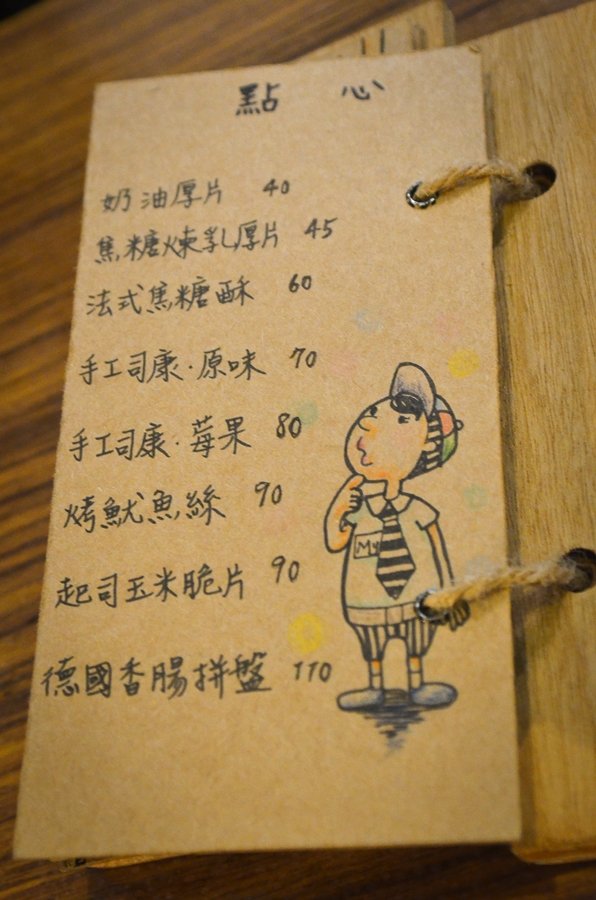 點心
奶油厚片 40
焦糖煉乳厚片 45
法式焦糖酥 60
手工司康·原味 70
手工司康·莓果 80
烤魷魚絲 90
起司玉米脆片 90
德國香腸拼盤 110
My